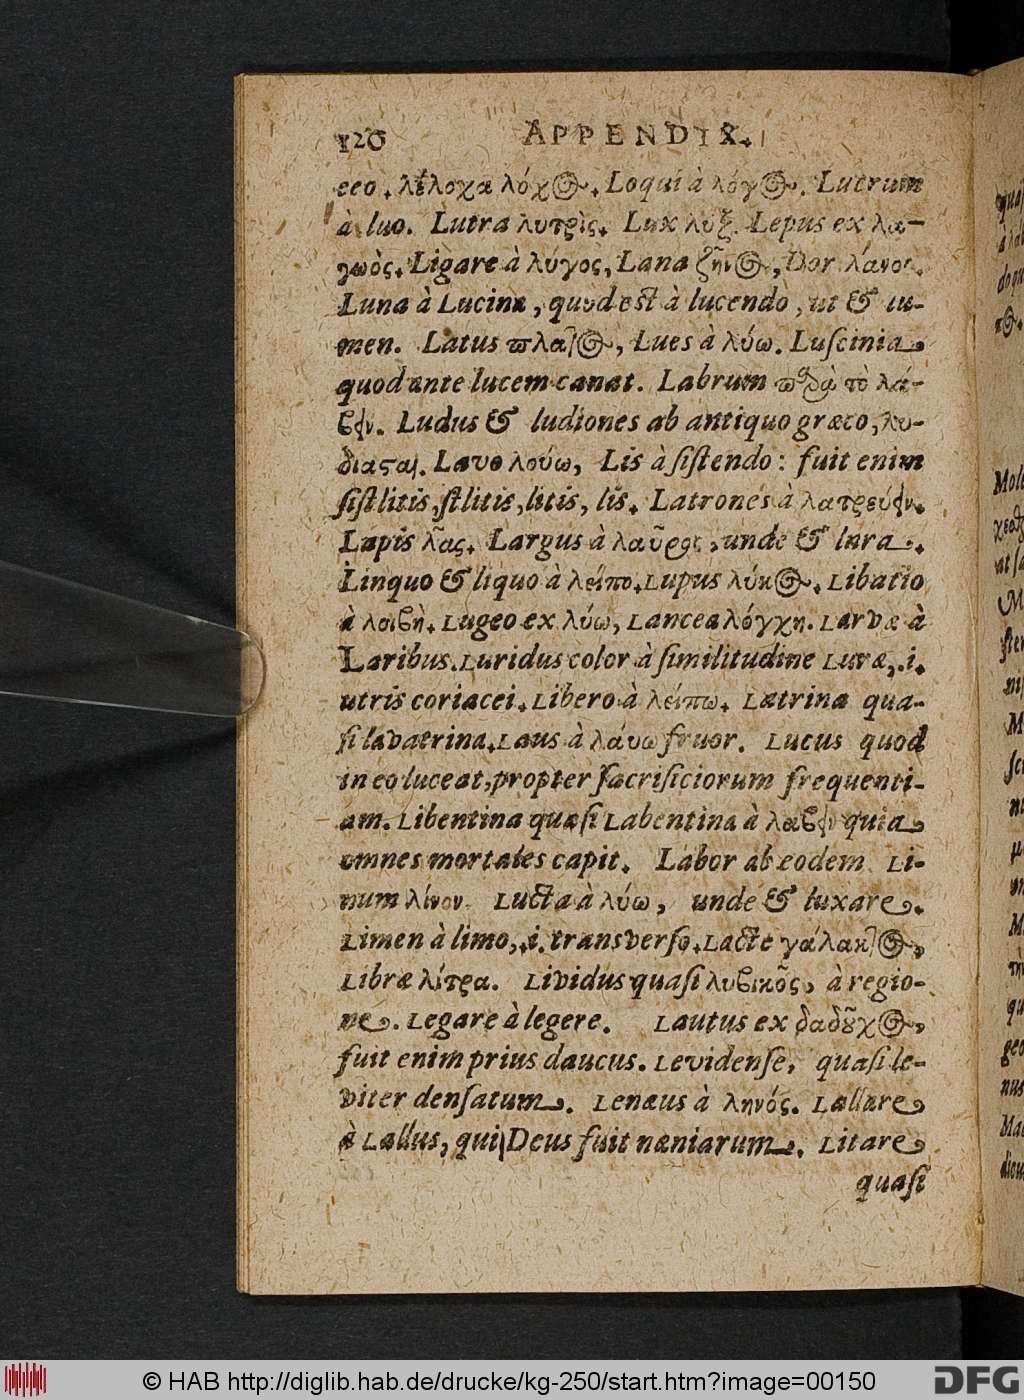 120 APPENDIX.
eco. λέλοχα λόχος. Loqui à λόγος. Lutrum
à luo. Lutra λυτρὶς. Lux λύξ. Lepus ex λα-
γωὸς. Ligare à λύγος, Lana λῆνος, Dor. λάνος.
Luna à Lucina, quod est à lucendo, ut & lu-
men. Latus πλάτος, Lues à λύω. Luſcinia
quod ante lucem canat. Labrum παρὰ τὸ λά-
βειν. Ludus & ludiones ab antiquo græco, λυ-
διασαι. Lavo λούω, Lis à ſiſtendo: fuit enim
ſiſtlitis, ſtlitis, litis, lis. Latrones à λατρεύειν.
Lapis λᾶας. Largus à λαῦρος, unde & lura.
Linquo & liquo à λείπο. Lupus λύκος. Libatio
à λοιβὴ. Lugeo ex λύω, Lancea λόγχη. Larvæ à
Laribus. Luridus color à ſimilitudine Luræ, .i.
utris coriacei. Libero à λείπω. Latrina qua-
ſi lavatrina. Laus à λάυω fruor. Lucus quod
in eo luceat, propter ſacrificiorum frequenti-
am. Libentina quaſi Labentina à λαβεῖν quia
omnes mortales capit. Labor ab eodem Li-
num λίνον. Lucta à λύω, unde & luxare.
Limen à limo, .i. transverſo. Lacte γάλακτος,
Libræ λίτρα. Lividus quaſi λυβικὸς, à regio-
ne. Legare à legere. Lautus ex δαδοῦχος,
fuit enim prius daucus. Levidenſe, quaſi le-
viter denſatum. Lenæus à ληνός. Lallare
à Lallus, qui Deus fuit næniarum. Litare
quaſi
© HAB http://diglib.hab.de/drucke/kg-250/start.htm?image=00150
DFG